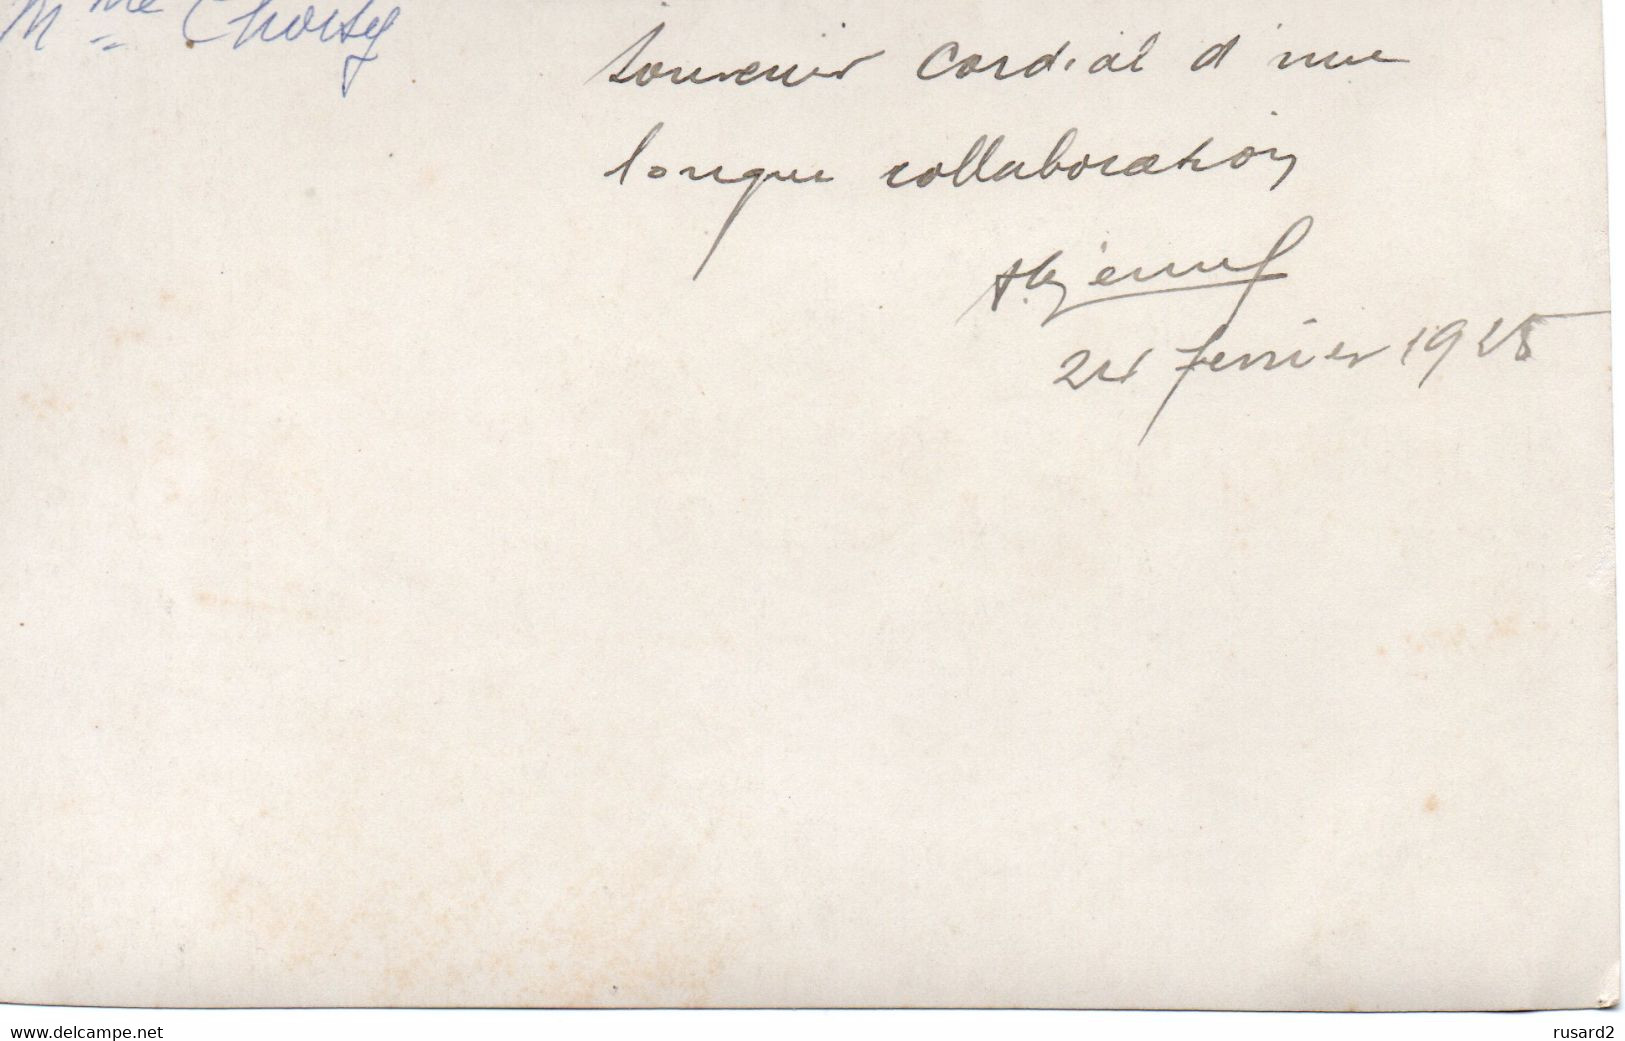 Mme Choisy
Souvenir cordial d'une
longue collaboration
24 fevrier 1925
www.delcampe.net
rusard2